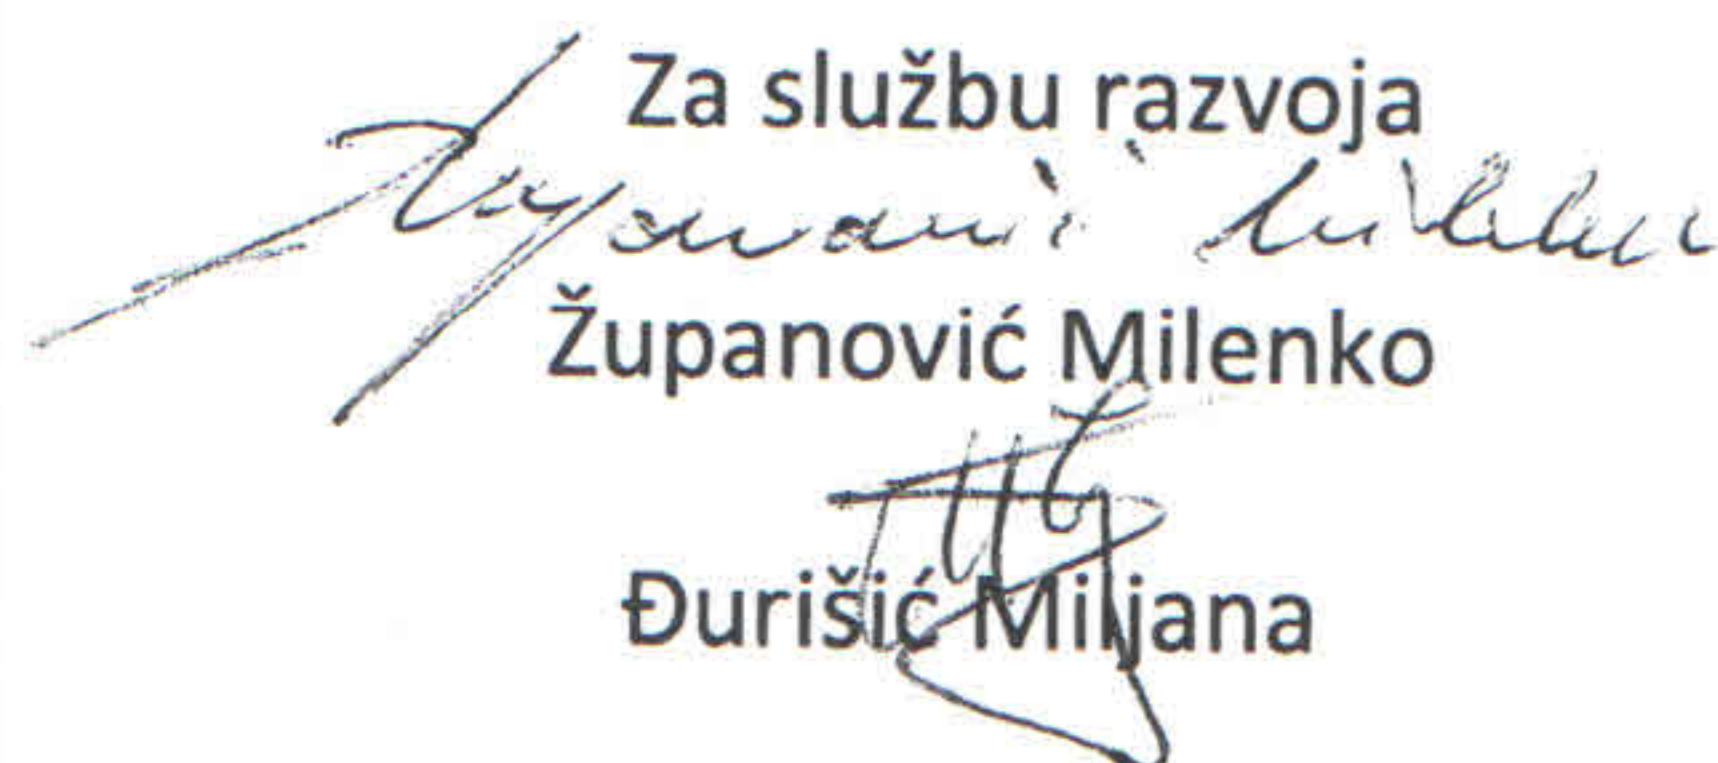 Za službu razvoja
Županović Milenko
Đurišić Miljana